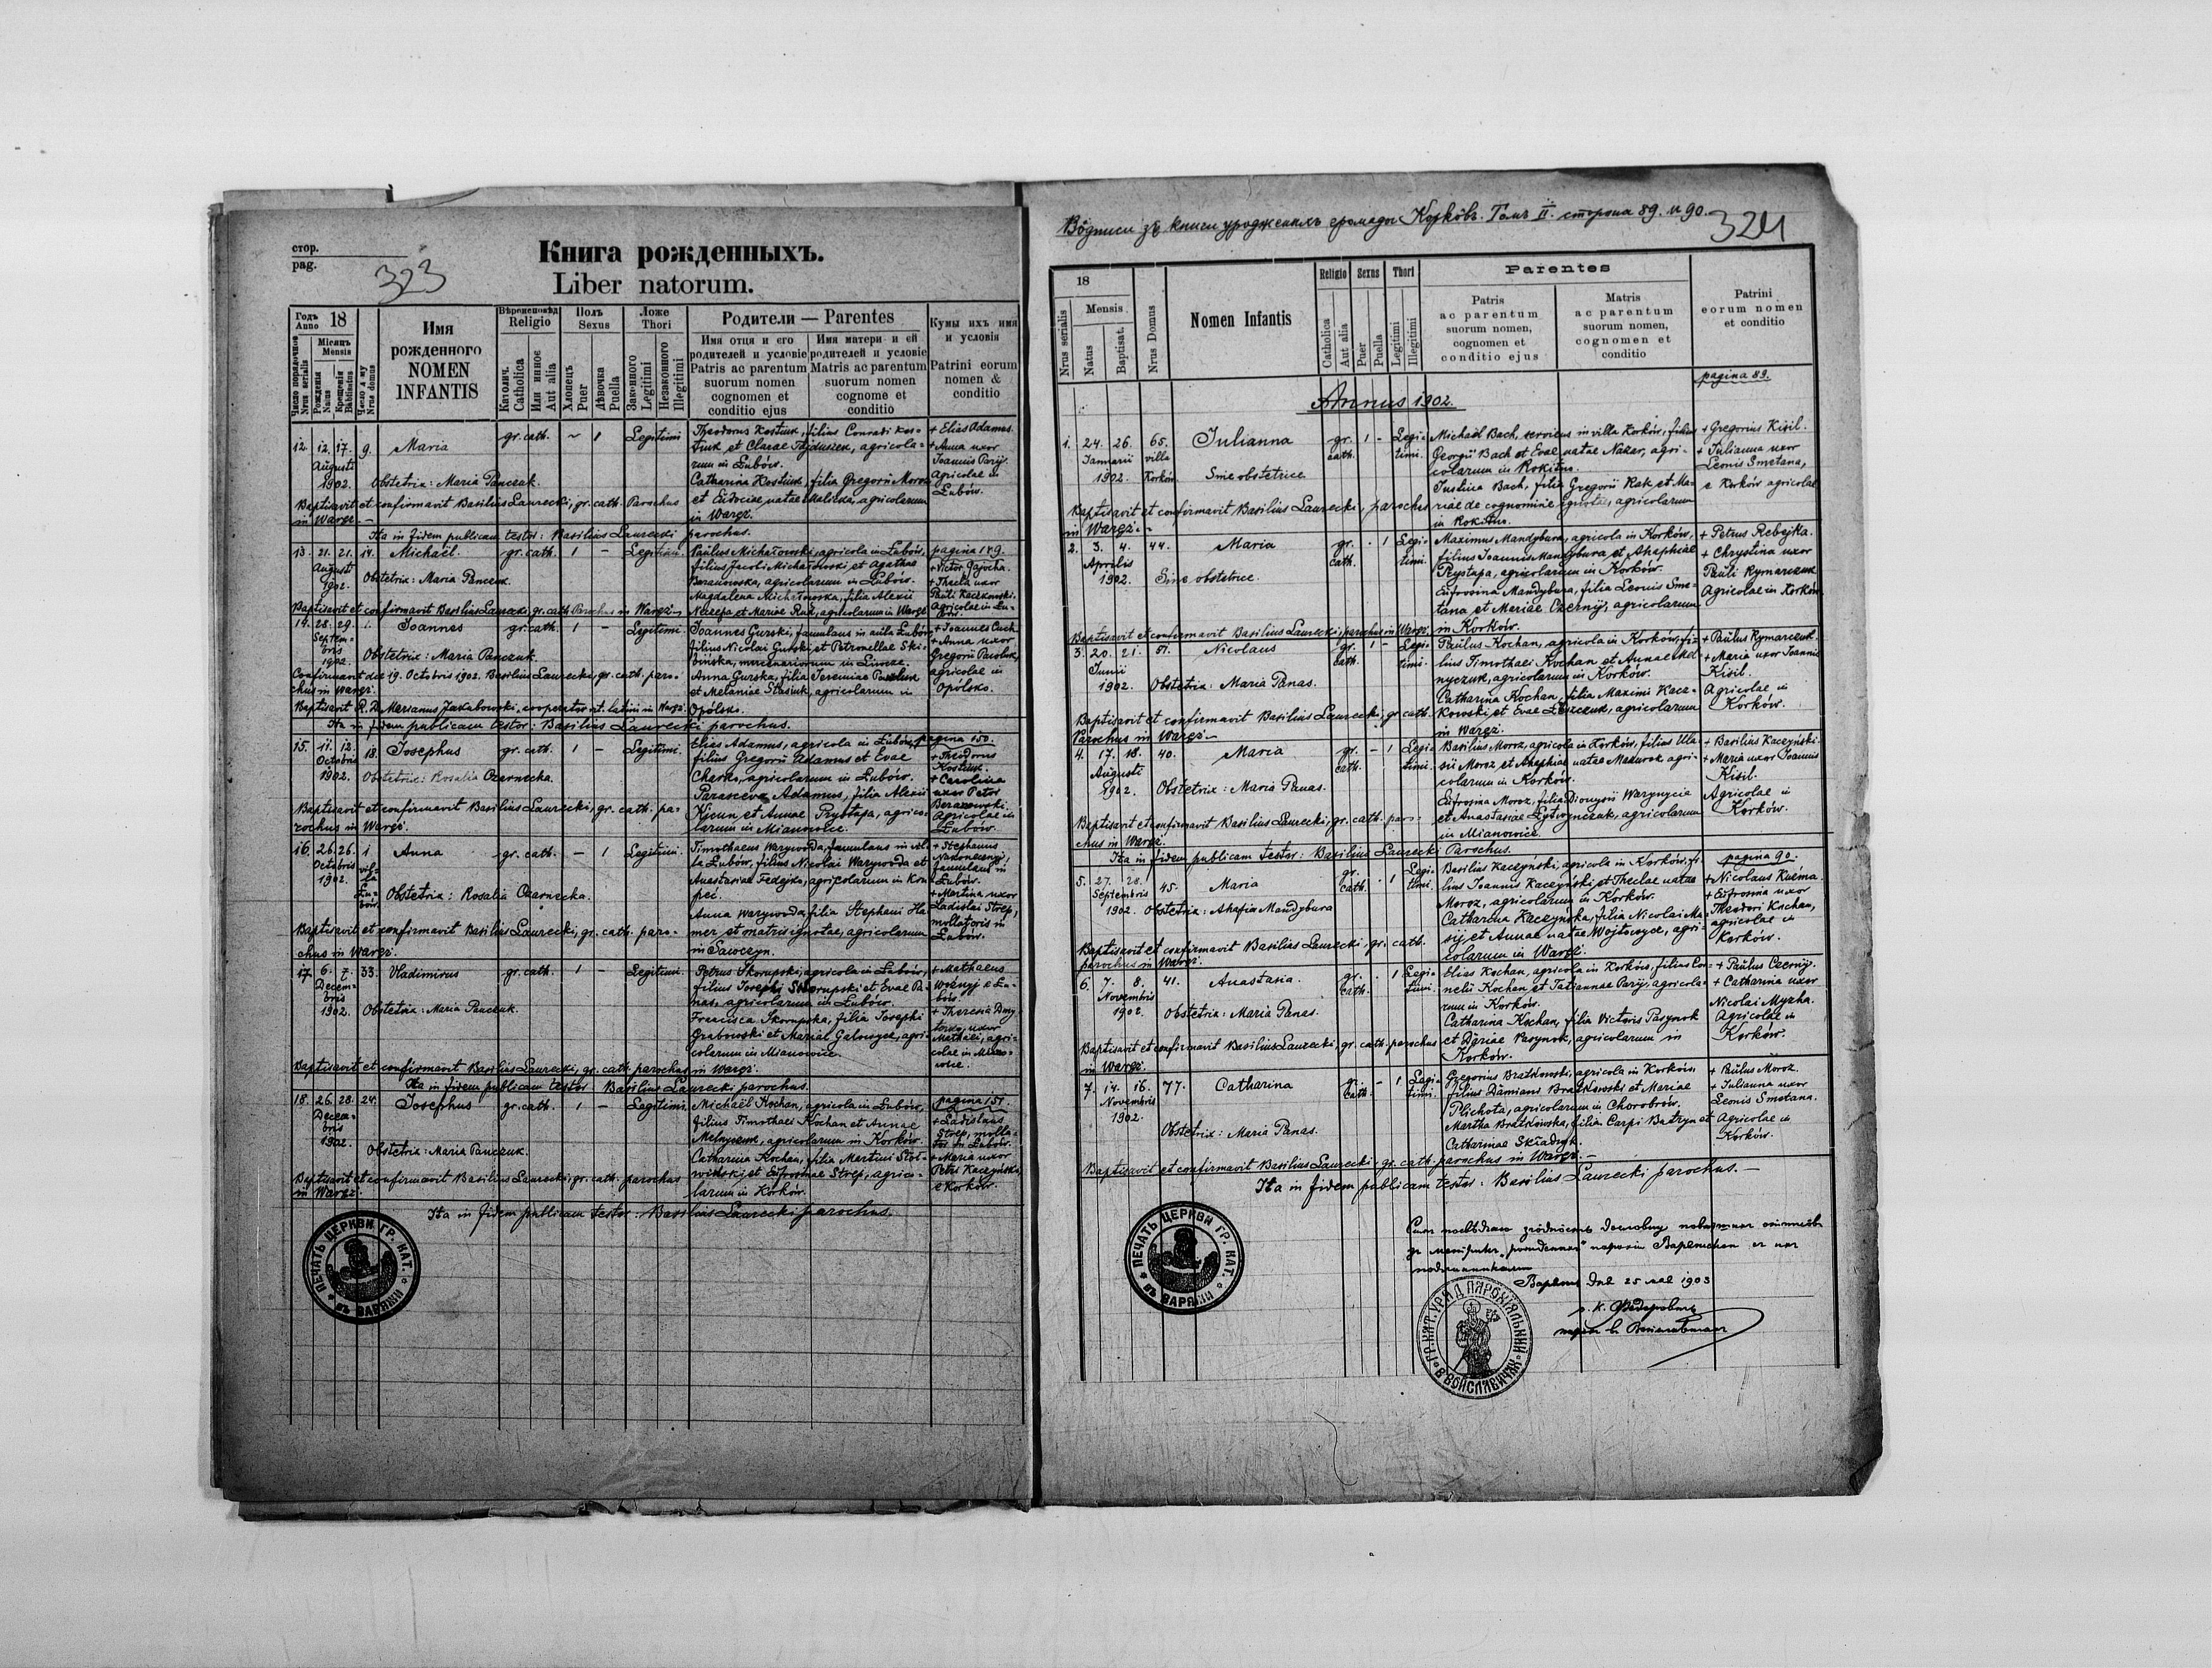 стор.
pag.
323
Книга рожденныхъ.
Liber natorum.
Годъ Anno 18
Місяцъ Mensis
Число порядочное Nrus serialis
Рожденія Natus
Крещенія Babtisatus
Число дому Nrus domus
Имя рожденного
NOMEN INFANTIS
Віроисповѣд Religio
Католич. Catholica
Или инноє Aut alia
Полъ Sexus
Хлопецъ Puer
Дѣвочка Puella
Ложе Thori
Законного Legitimi
Незаконного Illegitimi
Родители — Parentes
Имя отця и его родителей и условіе
Patris ac parentum suorum nomen cognomen et conditio ejus
Имя матери и ей родителей и условіе
Matris ac parentum suorum nomen cognome et conditio
Кумы ихъ имя и условія
Patrini eorum nomen & conditio
12. 12. 17. 9. Maria gr. cath. ~ 1 Legitimi
Augusti
1902. Obstetrix: Maria Panczuk.
Theodorus Kostiuk, filius Conradi Kos-
tiuk et Clarae Hajduszek, agricola-
rum in Łubów.
Catharina Kostiuk, filia Gregorii Moroz
et Eudociae natae Malinka, agricolarum
in Waręż.
+ Elias Adamus.
+ Anna uxor
Joannis Paryj.
Agricolae in
Łubów.
Baptisavit et confirmavit Basilius Laurecki, gr. cath. Parochus
in Waręż. —
Ita in fidem publicam testor: Basilius Laurecki parochus.
13. 21. 21. 14. Michaël. gr. cath. 1 — Legitimi.
Augusti
1902. Obstetrix: Maria Panczuk.
Paulus Michałowski, agricola in Łubów,
filius Jacobi Michałowski et Agathae
Beranowska, agricolarum in Łubów.
Magdalena Michałowska, filia Alexii
Neczepa et Mariae Rak, agricolarum in Waręż.
pagina 149.
+ Victor Gajocha.
+ Thecla uxor
Pauli Kaczkowski.
Agricolae in Łu-
bów.
Baptisavit et confirmavit Basilius Laurecki, gr. cath. Parochus in Waręż.
14. 28. 29. 1. Joannes gr. cath. 1 — Legitimi.
Septem-
bris
1902. Obstetrix: Maria Panczuk.
Joannes Gurski, famulans in aula Łubów,
filius Nicolai Gurski et Petronellae Ski-
bińska, mercenariorum in
Anna Gurska, filia Jeremiae
et Melaniae Stasiuk, agricolarum in
Opólsko.
+ Joannes Cach.
+ Anna uxor
Gregorii Pawluk,
agricolae in
Opólsko.
Confirmavit die 19. Octobris 1902. Basilius Laurecki, gr. cath. paro-
chus in Waręż.
Baptisavit R. D. Marianus Jakubowski, cooperator rit. latini in Waręż.
Ita in fidem publicam testor: Basilius Laurecki parochus.
15. 11. 12. 18. Josephus gr. cath. 1 — Legitimi.
Octobris
1902. Obstetrix: Rosalia Czarnecka.
Elias Adamus, agricola in Łubów,
filius Gregorii Adamus et Evae
agricolarum in Łubów.
Parasceva Adamus, filia Alexii
et Annae Przystupa, agrico-
larum in Mianowice.
pagina 150.
+ Theodorus
Kostiuk.
+ Carolina
uxor Petri
Beranowski.
Agricolae in
Łubów.
Baptisavit et confirmavit Basilius Laurecki, gr. cath. pa-
rochus in Waręż.
16. 26. 26. 1. Anna gr. cath. — 1 Legitimi.
Octobris vil-
1902. la
Łu-
bów. Obstetrix: Rosalia Czarnecka.
Timothaeus Warywoda, famulans in vil-
la Łubów, filius Nicolai Warywoda et
Anastasiae Fedejko, agricolarum in Kon-
Anna Warywoda, filia Stephani Ha-
mer et matris ignotae, agricolarum
in Sawczyn.
+ Stephanus
Nakonecznyj,
famulans in
Łubów.
+ Martina uxor
Ladislai Strep,
mollatoris in
Łubów.
Baptisavit et confirmavit Basilius Laurecki, gr. cath. paro-
chus in Waręż.
17. 6. 7. 33. Vladimirus gr. cath. 1 — Legitimi.
Decem-
bris
1902. Obstetrix: Maria Panczuk.
Petrus Skorupski, agricola in Łubów,
filius Josephi Skorupski et Evae Pa-
nas, agricolarum in Łubów.
Francisca Skorupska, filia Josephi
Grabowski et Mariae agri-
colarum in Mianowice.
+ Mathaeus
Woźnyj e Łu-
bów.
+ Theresia
uxor
Mathaei, agri-
colae in Miano-
wice.
Baptisavit et confirmavit Basilius Laurecki, gr. cath. parochus in Waręż.
Ita in fidem publicam testor: Basilius Laurecki parochus.
18. 26. 28. 24. Josephus gr. cath. 1 — Legitimi.
Decem-
bris
1902. Obstetrix: Maria Panczuk.
Michaël Kochan, agricola in Łubów,
filius Timothaei Kochan et Annae
Melnyczuk, agricolarum in Korków.
Catharina Kochan, filia Martini
et Eufrosinae Strep, agrico-
larum in Korków.
pagina 151.
+ Ladislaus
Strep, molla-
tor in Łubów.
+ Maria uxor
Petri Kaczyński,
e Korków.
Baptisavit et confirmavit Basilius Laurecki, gr. cath. parochus
in Waręż.
Ita in fidem publicam testor: Basilius Laurecki parochus.
ПЕЧАТЬ ЦЕРКВИ ГР. КАТ. ВЪ ВАРЯЖИ
Водписи зъ книги уродженыхъ громады Корковъ. Томъ II. сторона 89. и 90.
324
18
Nrus serialis
Mensis
Natus
Baptisat.
Nrus Domus
Nomen Infantis
Religio
Catholica
Aut alia
Sexus
Puer
Puella
Thori
Legitimi
Illegitimi
Parentes
Patris
ac parentum
suorum nomen,
cognomen et
conditio ejus
Matris
ac parentum
suorum nomen,
cognomen et
conditio
Patrini
eorum nomen
et conditio
pagina 89.
Annus 1902.
1. 24. 26. 65. Julianna gr. 1 - Legi-
Januarii villa cath. timi.
1902. Korków Sine obstetrice
Michaël Bach, serviens in villa Korków, filius
Georgii Bach et Evae natae Nazar, agri-
colarum in Rokitno.
Justina Bach, filia Gregorii Rak et Ma-
riae de cognomine ignotae, agricolarum
in Rokitno.
+ Gregorius Kisil.
+ Julianna uxor
Leonis Smetana,
e Korków agricolae
Baptisavit et confirmavit Basilius Laurecki, parochus
in Waręż. -
2. 3. 4. 44. Maria gr. · 1 Legi-
Aprilis cath. timi.
1902. Sine obstetrice.
Maximus Mandybura, agricola in Korków,
filius Joannis Mandybura et Ahaphiae
Przystupa, agricolarum in Korków.
Eufrosina Mandybura, filia Leonis Sme-
tana et Mariae Czernij, agricolarum
in Korków.
+ Petrus Rebejka.
+ Chrystina uxor
Pauli Rymarczuk
Agricolae in Korków
Baptisavit et confirmavit Basilius Laurecki, parochus in Waręż.
3. 20. 21. 51. Nicolaus gr. 1 - Legi-
Junii cath. timi.
1902. Obstetrix: Maria Panas.
Paulus Kochan, agricola in Korków, fi-
lius Timothaei Kochan et Annae Mel-
nyczuk, agricolarum in Korków.
Catharina Kochan, filia Maximi Kacz-
kowski et Evae agricolarum
in Waręż.
+ Paulus Rymarczuk.
+ Maria uxor Joannis
Kisil.
Agricolae in
Korków.
Baptisavit et confirmavit Basilius Laurecki, gr. cath.
Parochus in Waręż. —
4. 17. 18. 40. Maria gr. - 1 Legi-
Augusti cath. timi.
1902. Obstetrix: Maria Panas.
Basilius Moroz, agricola in Korków, filius Vla-
sii Moroz et Ahaphiae natae Mazurok agri-
colarum in Korków.
Eufrosina Moroz, filia Dionysii Warynycia
et Anastasiae agricolarum
in Mianowice.
+ Basilius Kaczyński.
+ Maria uxor Joannis
Kisil.
Agricolae in
Korków.
Baptisavit et confirmavit Basilius Laurecki, gr. cath. paro-
chus in Waręż.
Ita in fidem publicam testor: Basilius Laurecki Parochus.
5. 27. 28. 45. Maria gr. · 1 Legi-
Septembris cath. timi.
1902. Obstetrix: Ahafia Mandybura
Basilius Kaczyński, agricola in Korków, fi-
lius Joannis Kaczyński et Theclae natae
Moroz, agricolarum in Korków.
Catharina Kaczyńska, filia Nicolai Ma-
sij et Annae natae Wojtowycz, agri-
colarum in Waręż.
pagina 90.
+ Nicolaus Kuźma.
+ Eufrosina uxor
Theodori Kochan,
agricolae in
Korków.
Baptisavit et confirmavit Basilius Laurecki, gr. cath.
parochus in Waręż.
6. 7. 8. 41. Anastasia. gr. · 1 Legi-
Novembris cath. timi.
1902. Obstetrix: Maria Panas.
Elias Kochan, agricola in Korków, filius Cor-
nelii Kochan et Tatiannae Paryj, agricola-
rum in Korków.
Catharina Kochan, filia Victoris Pasynok
et Dariae Pasynok, agricolarum in
Korków.
+ Paulus Czernij.
+ Catharina uxor
Nicolai Myzha.
Agricolae in
Korków.
Baptisavit et confirmavit Basilius Laurecki, gr. cath. parochus
in Waręż.
7. 14. 16. 77. Catharina gr. - 1 Legi-
Novembris cath. timi.
1902.
Obstetrix: Maria Panas.
Gregorius Bratkowski, agricola in Korków,
filius Damiani Bratkowski et Mariae
Plichota, agricolarum in Chorobrów.
Martha Bratkowska, filia Carpi Batryn et
Catharinae
+ Paulus Moroz.
+ Julianna uxor
Leonis Smetana.
Agricolae in
Korków.
Baptisavit et confirmavit Basilius Laurecki, gr. cath. parochus in Waręż. —
Ita in fidem publicam testor: Basilius Laurecki parochus. —
ПЕЧАТЬ ЦЕРКВИ ГР. КАТ. ВЪ ВАРЯЖИ
Варяж дня 25 мая 1903
ГР. КАТ. УРЯД ПАРОХІЯЛЬНИЙ В ВОЙСЛАВИЧАХ